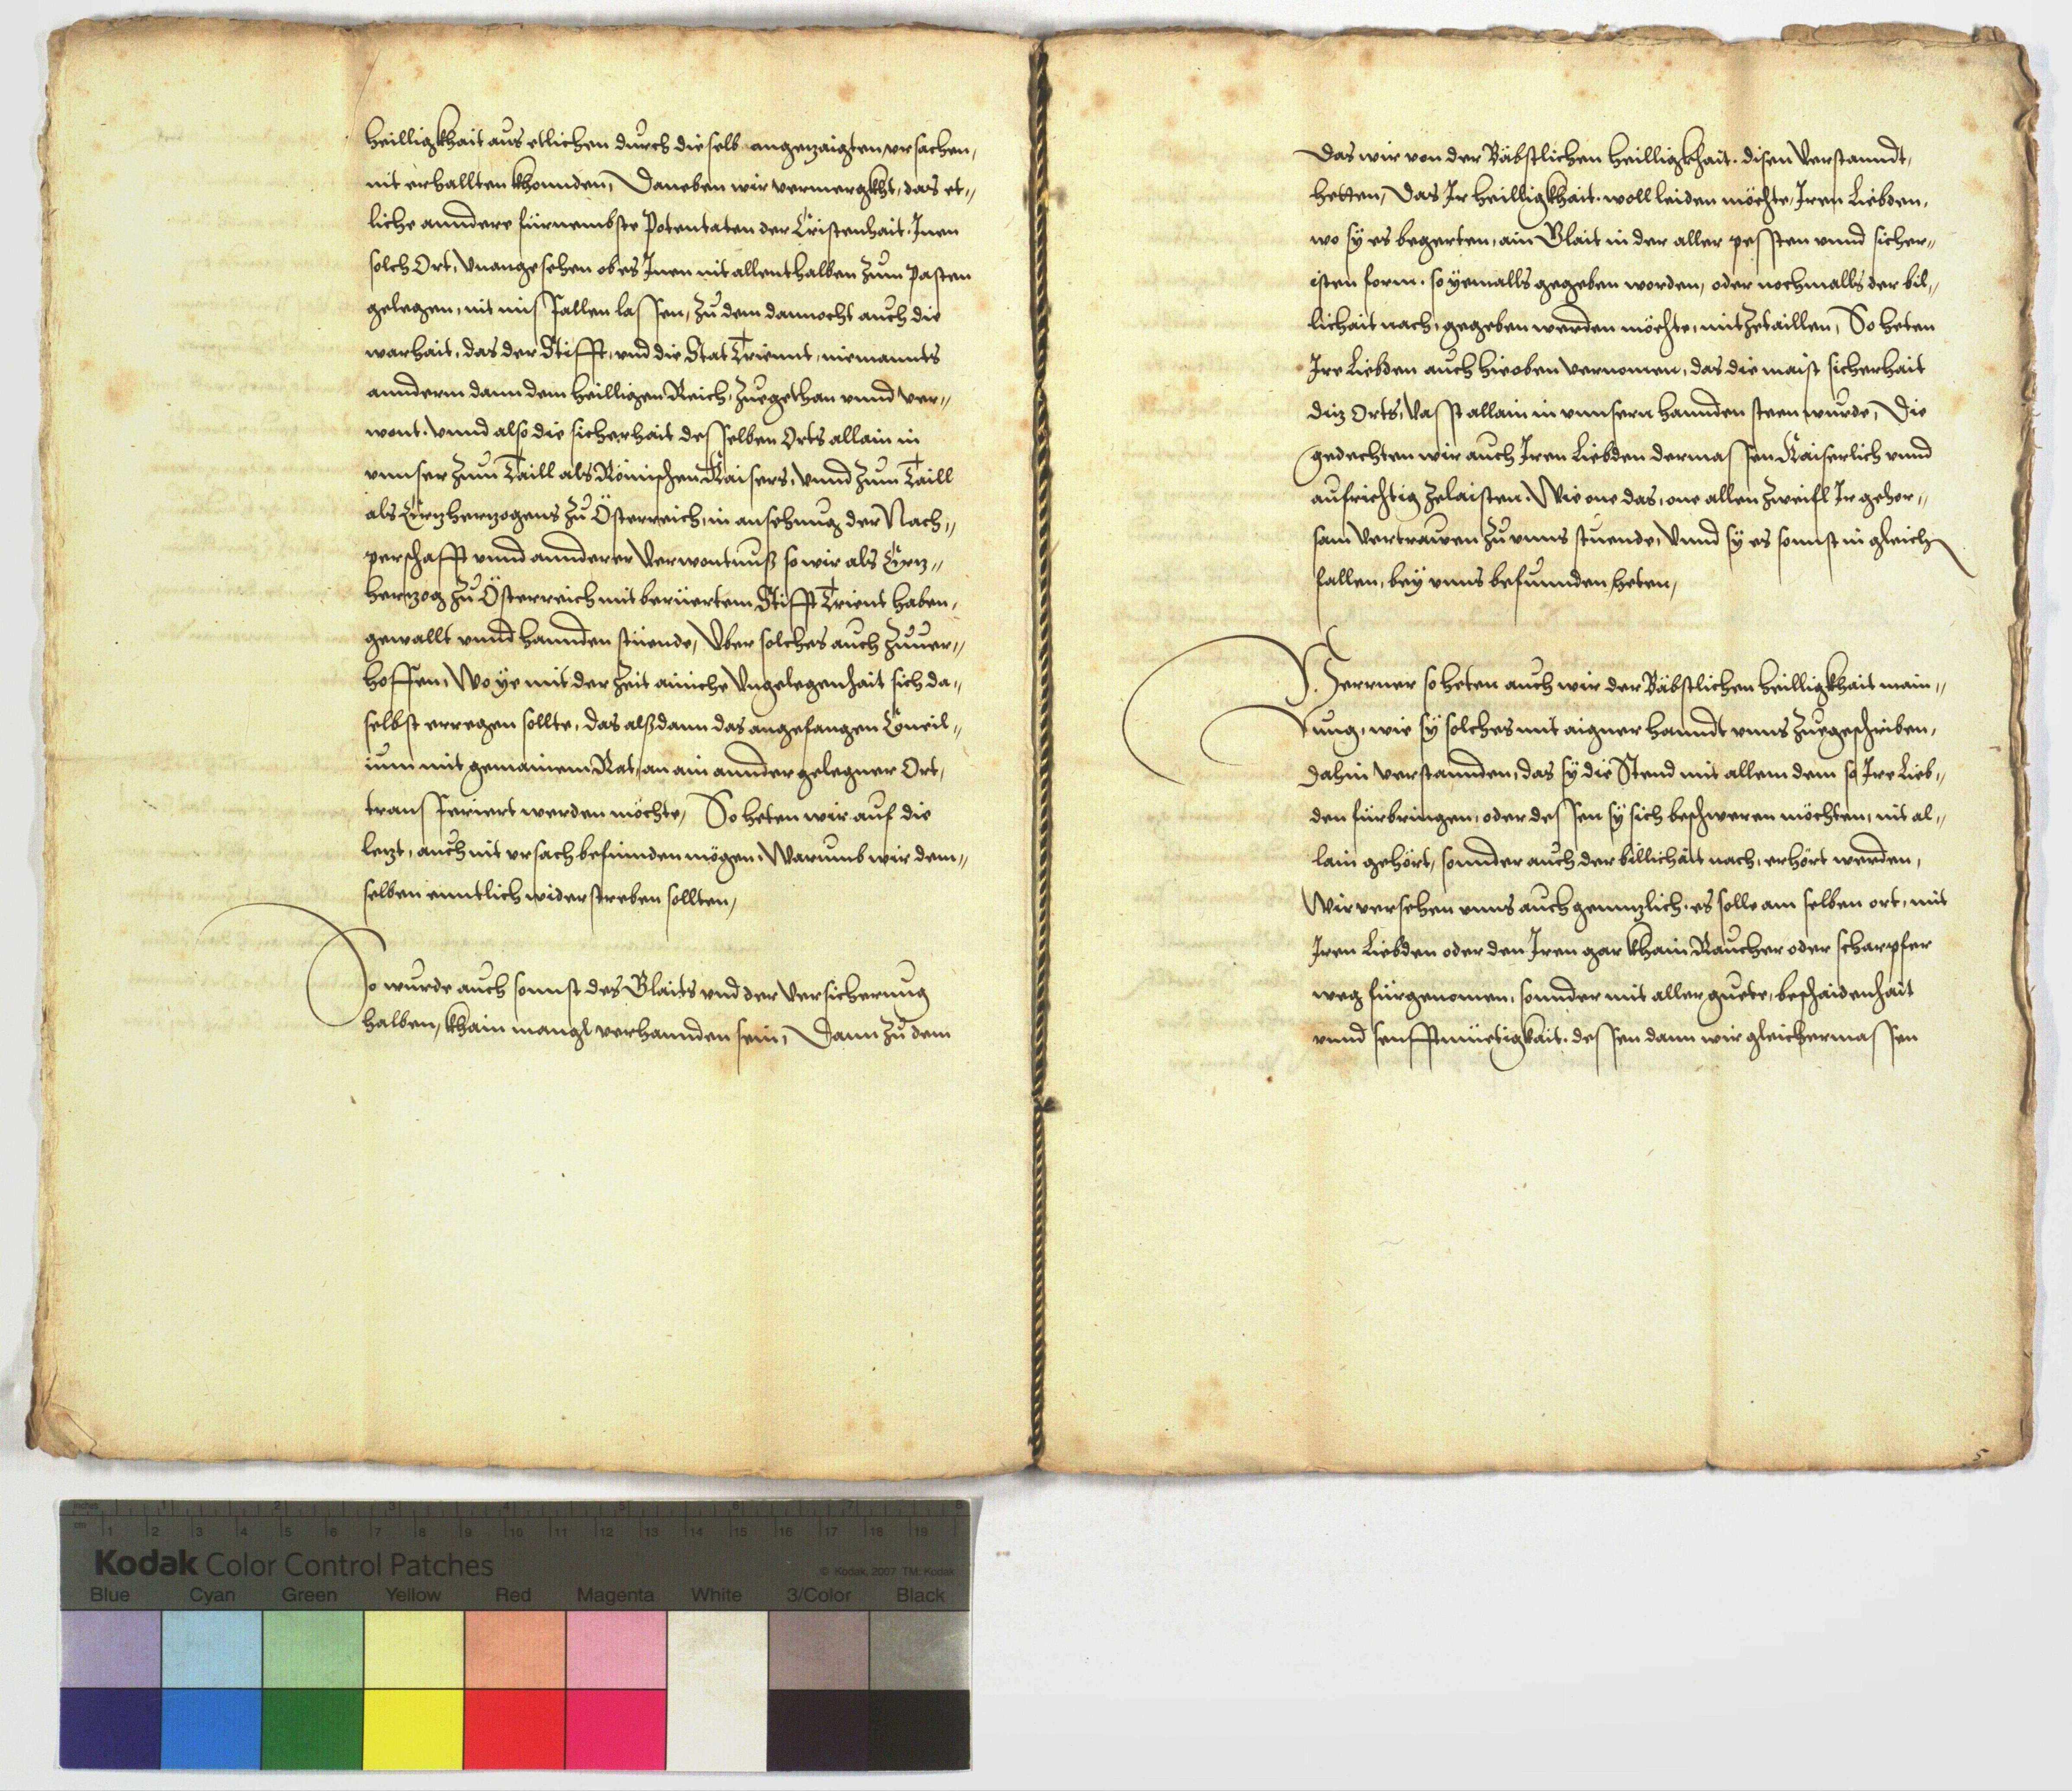 heilligkhait aus etlichen durch dieselb angezaigten vrsachen,
nit erhallten khonnden, Daneben wir vermergkht, das et„
liche anndere fürnembste Potentaten der Cristenhait. Inen
solch Ort, Vnangesehen ob es Inen nit allenthalben zum pasten
gelegen, nit missfallen lassen, Zu dem dannocht auch die
warhait, das der Stifft, vnd die Stat Triennt, niemannts
annderm dann dem heilligen Reich, zuegethan vnnd ver„
wont. Vnnd also die sicherhait desselben Orts allain in
vnnser zum Taill als Römischen Kaisers, Vnnd zum Taill
als Ertzhertzogens zu Österreich, in ansehung der Nach„
perschafft vnnd annderer Verwontnuß so wir als Ertz„
hertzog zu Österreich mit berüertem Stifft Trient haben,
gewallt vnnd hannden stüende, Vber solches auch zuuer„
hoffen, Wo ye mit der Zeit ainiche Vngelegenhait sich da„
selbst erregen sollte, das alßdann das angefangen Concil„
ium mit gemainem Rat, an ain annder gelegner Ort,
transferiert werden möchte, So heten wir auf die
letzt, auch nit vrsach befinnden mögen, Warumb wir dem„
selben enntlich widerstreben sollten,
So wurde auch sonnst des Glaits vnd der Versicherung
halben, khain manngl verhannden sein, Dann zu dem
Das wir von der Bäbstlichen heilligkhait. disen Verstanndt,
hetten, Das Ir heilligkhait. woll leiden möchte, Iren Liebden,
wo sy es begerten, ain Glait in der aller pessten vnnd sicher„
isten form. so yemalls gegeben worden, oder nochmalls der bil„
lichait nach, gegeben werden möchte, mitzetaillen, So heten
Ire Liebden auch hieoben vernomen, das die maist sicherhait
ditz Orts, Vasst allain in vnnsern hannden steen wurde, Die
gedechten wir auch Iren Liebden dermassen Kaiserlich vnnd
aufrichtig zelaisten. Wie one das, one allen Zweifl Ir gehor„
sam Vertrawen zu vnns stuende, Vnnd sy es sonnst in gleich
fallen, bey vnns befunnden heten,
Ferrner so heten auch wir der Bäbstlichen heilligkhait main„
ung, wie sy solches mit aigner hanndt vnns zuegeschriben,
dahin verstannden, das sy die Stend mit allem dem so Ire Lieb„
den fürbringen, oder dessen sy sich beschweren möchten, nit al„
lain gehört, sonnder auch der billichait nach, erhört werden,
Wir versehen vnns auch genntzlich. es solle am selben ort, mit
Iren Liebden oder den Iren gar khain Raucher oder scharpfer
weg fürgenomen, sonnder mit aller guete, beschaidenhait
vnnd senfftmüetigkait. dessen dann wir gleichermassen
5
Kodak Color Control Patches
© Kodak, 2007 TM: Kodak
Blue Cyan Green Yellow Red Magenta White 3/Color Black